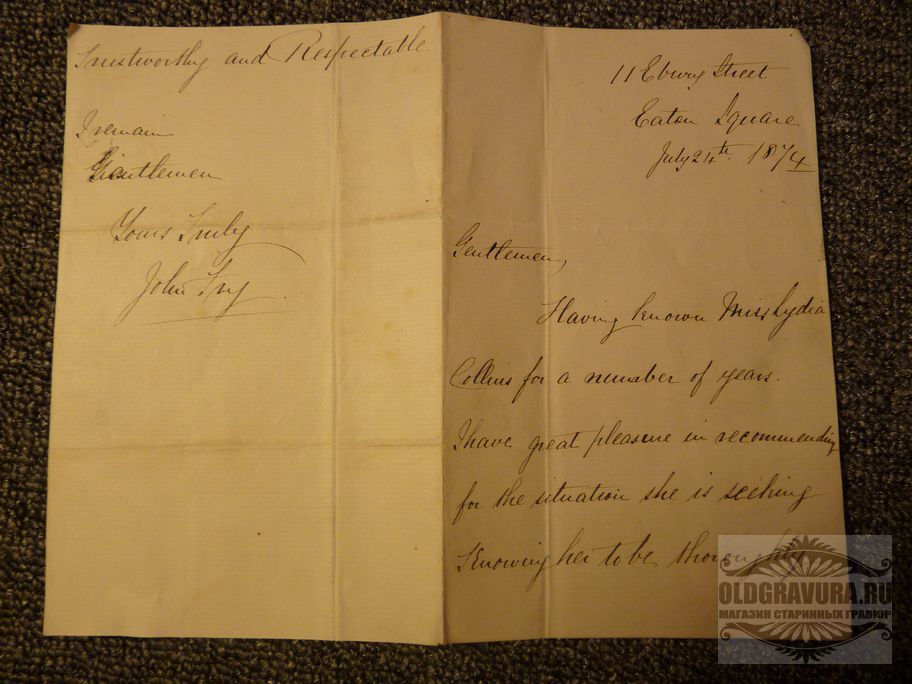 11 Ebury Street
Eaton Square.
July 24th. 1874
Gentlemen,
Having known Miss Lydia
Collins for a number of years.
I have great pleasure in recommending
for the situation she is seeking
Knowing her to be thoroughly
Trustworthy and Respectable.
I remain
Gentlemen
Yours Truly
John Fry.
OLDGRAVURA.RU
МАГАЗИН СТАРИННЫХ ГРАВЮР